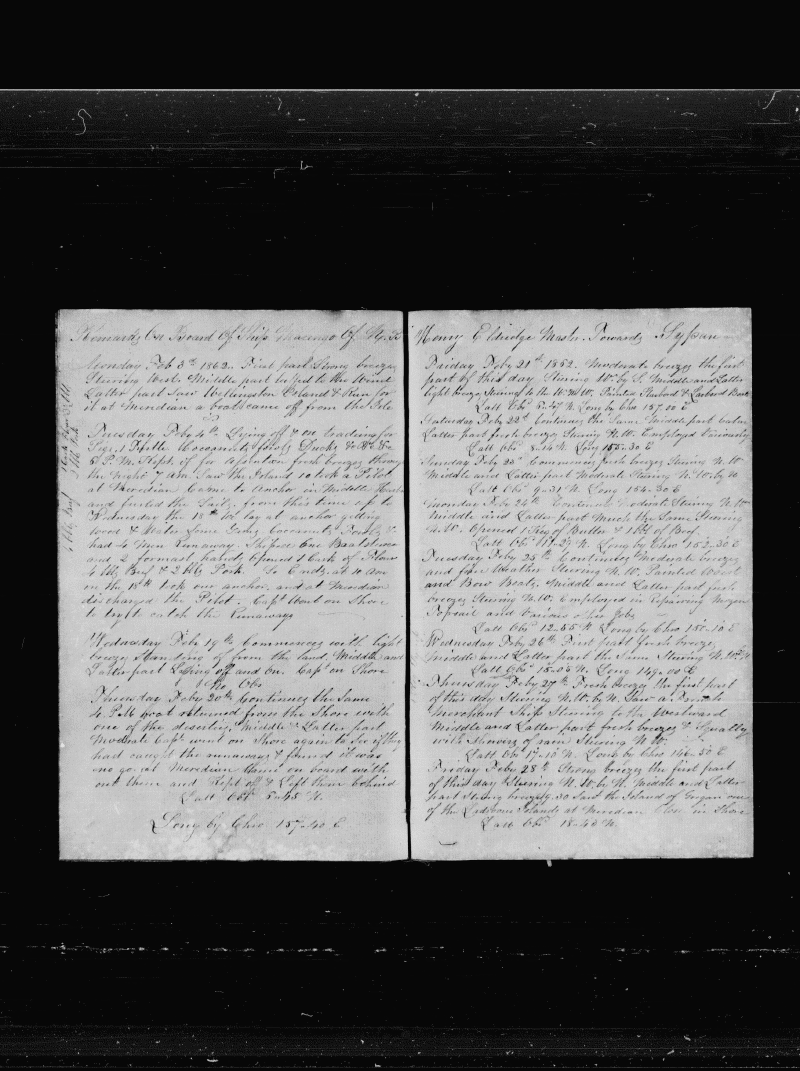 Remarks On Board Of Ship Of
Monday Feb 3rd 1862. First part Strong breezes
Steering West. Middle part to the Wind
Latter part Saw Wellington Island & Run for
it at Meridian a boat came off from the Isle
Tuesday Feby 4th Lying off & on trading for
Pigs, Turtle Cocoanuts fowls Ducks &c &c &c
5 P.M. Kept of for fresh breezes through
the night 7 AM. Saw the Island 10 took a Pilot
at Meridian Came to Anchor in Middle
and furled the Sails, from this time up to
Wednesday the 18th lay at anchor geting
wood & Water Some Cocoanuts Fowls &
had 4 Men Runaway
and 3 formast hands, opened 1 Cask of Flour
4 bbls Beef & 2 bbls Pork So Ends, at 10 AM
on the 18th took one anchor, and at Meridian
discharged the Pilot. Capt Went on Shore
to try & catch the Runaways
Wednesday Feb 19th Commences with light
breeze Standing of from the land, Middle and
Latter part Laying off and On. Capt on Shore
No Obs
Thursday Feby 20th Continues the Same
4 P.M boat returned from the Shore with
one of the deserters, Middle & Latter part
Moderate Capt went on Shore again to See if they
had caught the runaways & found it was
no go, at Meridian Came on board with
out them and Kept of & Left them behind
Latt Obs 5-45 N.
Long by Chro 157-40 E
Henry Eldridge Master Towards
Friday Feby 21st 1862. Moderate breezes the first
part of this day Steering W. by S. Middle and Latter
light breezes Steering to the Painted Starbord & Larbord Boats
Latt Obs N Long by Chro 157.00 E
Saturday Feby 22d Continues the Same Middle part Calm
Latter part fresh breezes Steering N.W. Employed Variously
Latt Obs N Long 155-30 E
Sunday Feby 23d Commences fresh breezes Steering N.W
Middle and Latter part Moderate Steering N.W. by W
Latt Obs 9-31 N. Long 154-30 E
Monday Feby 24th Continues Moderate Steering N.W
Middle and Latter part Much the Same Steering
N.W. Opened 1 Keg of Butter & 1 bbl of Beef.
Latt Obs 11-27 N. Long by Chro 152-30 E
Tuesday Feby 25th Continues Moderate breezes
and fine Weather Steering N.W. Painted Waist
and Bow Boats, Middle and Latter part fresh
breezes Steering N.W. Employed in Repairing Mizen
Topsail and Various other Jobs
Latt Obs 12-55 N. Long by Chro 151-10 E
Wednesday Feby 26th First part fresh breezes,
Middle and Latter part the Same Steering N.W.
Latt Obs 15-05 N. Long 149-00 E
Thursday Feby 27th Fresh breezes the first part
of this day Steering N.W. by N. Saw a
Merchant Ship Steering to the Westward
Middle and Latter part fresh breezes & Squally
with Showers of rain Steering N.W.
Latt Obs 17-10 N. Long by Chro 146-50 E
Friday Feby 28th Strong breezes the first part
of this day Steering N.W. by N. Middle and Latter
part Strong breezes 9.30 Saw the Island of one
of the Ladrone Islands at Meridian Close in Shore
Latt Obs 18-43 N.